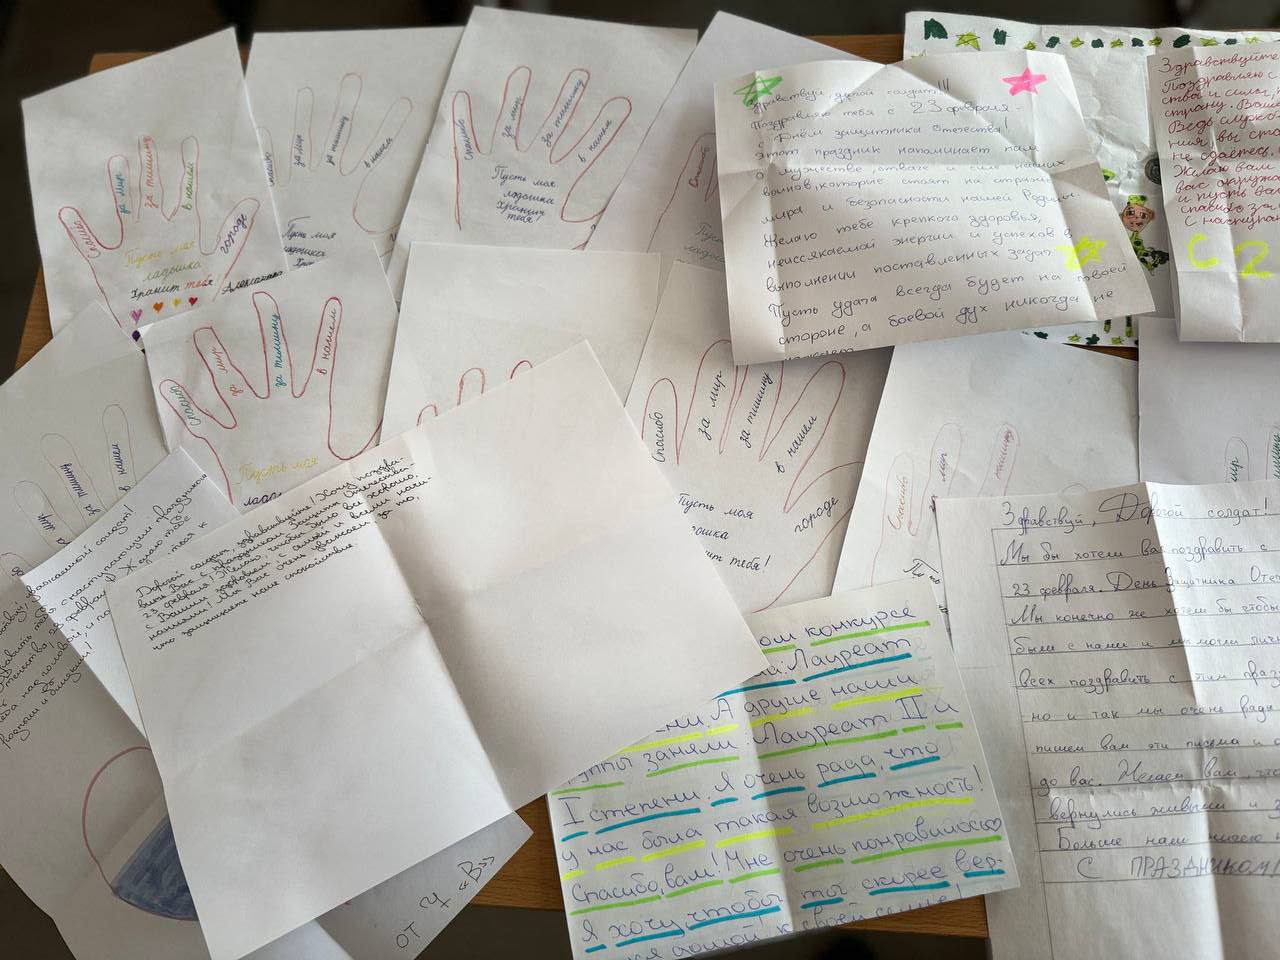 Спасибо
за мир
за тишину
в нашем
городе
Пусть моя
ладошка
хранит тебя!
Александра
за мир
за тишину
в нашем
Пусть моя
ладошка
Спасибо
за мир
за тишину
в нашем
Пусть моя
ладошка
хранит
тебя!
Спасибо
Пусть моя
Здравствуй, дорогой солдат!!!
Поздравляю тебя с 23 февраля -
с Днём защитника Отечества!
Этот праздник напоминает нам
о мужестве, отваге и силе наших
воинов, которые стоят на страже
мира и безопасности нашей Родины.
Желаю тебе крепкого здоровья,
неиссякаемой энергии и успехов в
выполнении поставленных задач.
Пусть удача всегда будет на твоей
стороне, а боевой дух никогда не
Здравствуйте
Поздравляю с
ства и силы,
страну. Ваша
Ведь служба
ния вы сто
не сдаётесь.
Желаю вам
вас окружа
и пусть ва
спасибо за
С наступа
С 2
Спасибо
за мир
за тишину
в нашем
Пусть моя
ладош
Спасибо
за мир
за тишину
в нашем
городе
Пусть моя
дошка
нит тебя!
Спасибо
мир
тишину
Пусть
мир
мир
за тишину
в нашем
уважаемый солдат!
с наступающим праздником
Желаю тебе
Дорогой солдат, здравствуйте! Хочу поздра-
вить Вас с праздником Защиты Отечества-
23 февраля! Желаю, чтобы было всё хорошо,
с Вашим здоровьем, с семьёй и всеми начи-
наниями! Мы Вас очень уважаем за то,
что защищаете наше спокойствие.
ом конкурсе
Лауреат
ени. А другие наши
группы заняли Лауреат II и
I степени. Я очень рада, что
у нас была такая возможность!
Спасибо, вам! Мне очень понравилось
Я хочу, чтобы ты скорее вер-
ся домой к своей семье!
Здравствуй, Дорогой солдат!
Мы бы хотели вас поздравить с
23 февраля. День Защитника Отече
Мы конечно же хотели бы чтобы
были с нами и мы могли лично
всех поздравить с этим праз
но и так мы очень рады
пишем вам эти письма и о
до вас. Желаем вам, что
вернулись живыми и з
Больше нам нечего
С ПРАЗДНИКОМ!
от 4 «В»